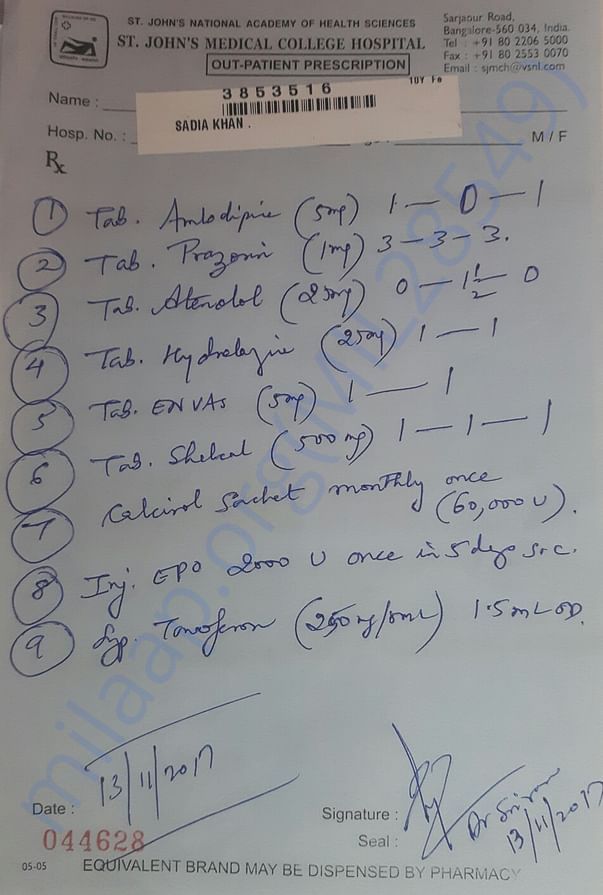 ST. JOHN'S NATIONAL ACADEMY OF HEALTH SCIENCES
ST. JOHN'S MEDICAL COLLEGE HOSPITAL
OUT-PATIENT PRESCRIPTION
Sarjapur Road,
Bangalore-560 034, India.
Tel : +91 80 2206 5000
Fax : +91 80 2553 0070
Email : sjmch@vsnl.com
10Y Fe
Name :
3853516
SADIA KHAN .
Hosp. No. :
M / F
Rx
1 Tab. Amlodipine (5mg) 1 — 0 — 1
2 Tab. Prazosin (1mg) 3 — 3 — 3.
3 Tab. Atenolol (25mg) 0 — 1 1/2 — 0
4 Tab. Hydralazine (25mg) 1 — 1
5 Tab. ENVAS (5mg) 1 — 1
6 Tab. Shelcal (500mg) 1 — 1 — 1
7 Calcirol Sachet monthly once
(60,000 U).
8 Inj. EPO 2000 U once in 5 days s.c.
9 Syp. (250mg/5mL) 1.5mL OD.
Date : 13/11/2017
Signature :
Seal : Dr Sriram
13/11/2017
044628
05-05 EQUIVALENT BRAND MAY BE DISPENSED BY PHARMACY
milaap.org(MIL_28549)